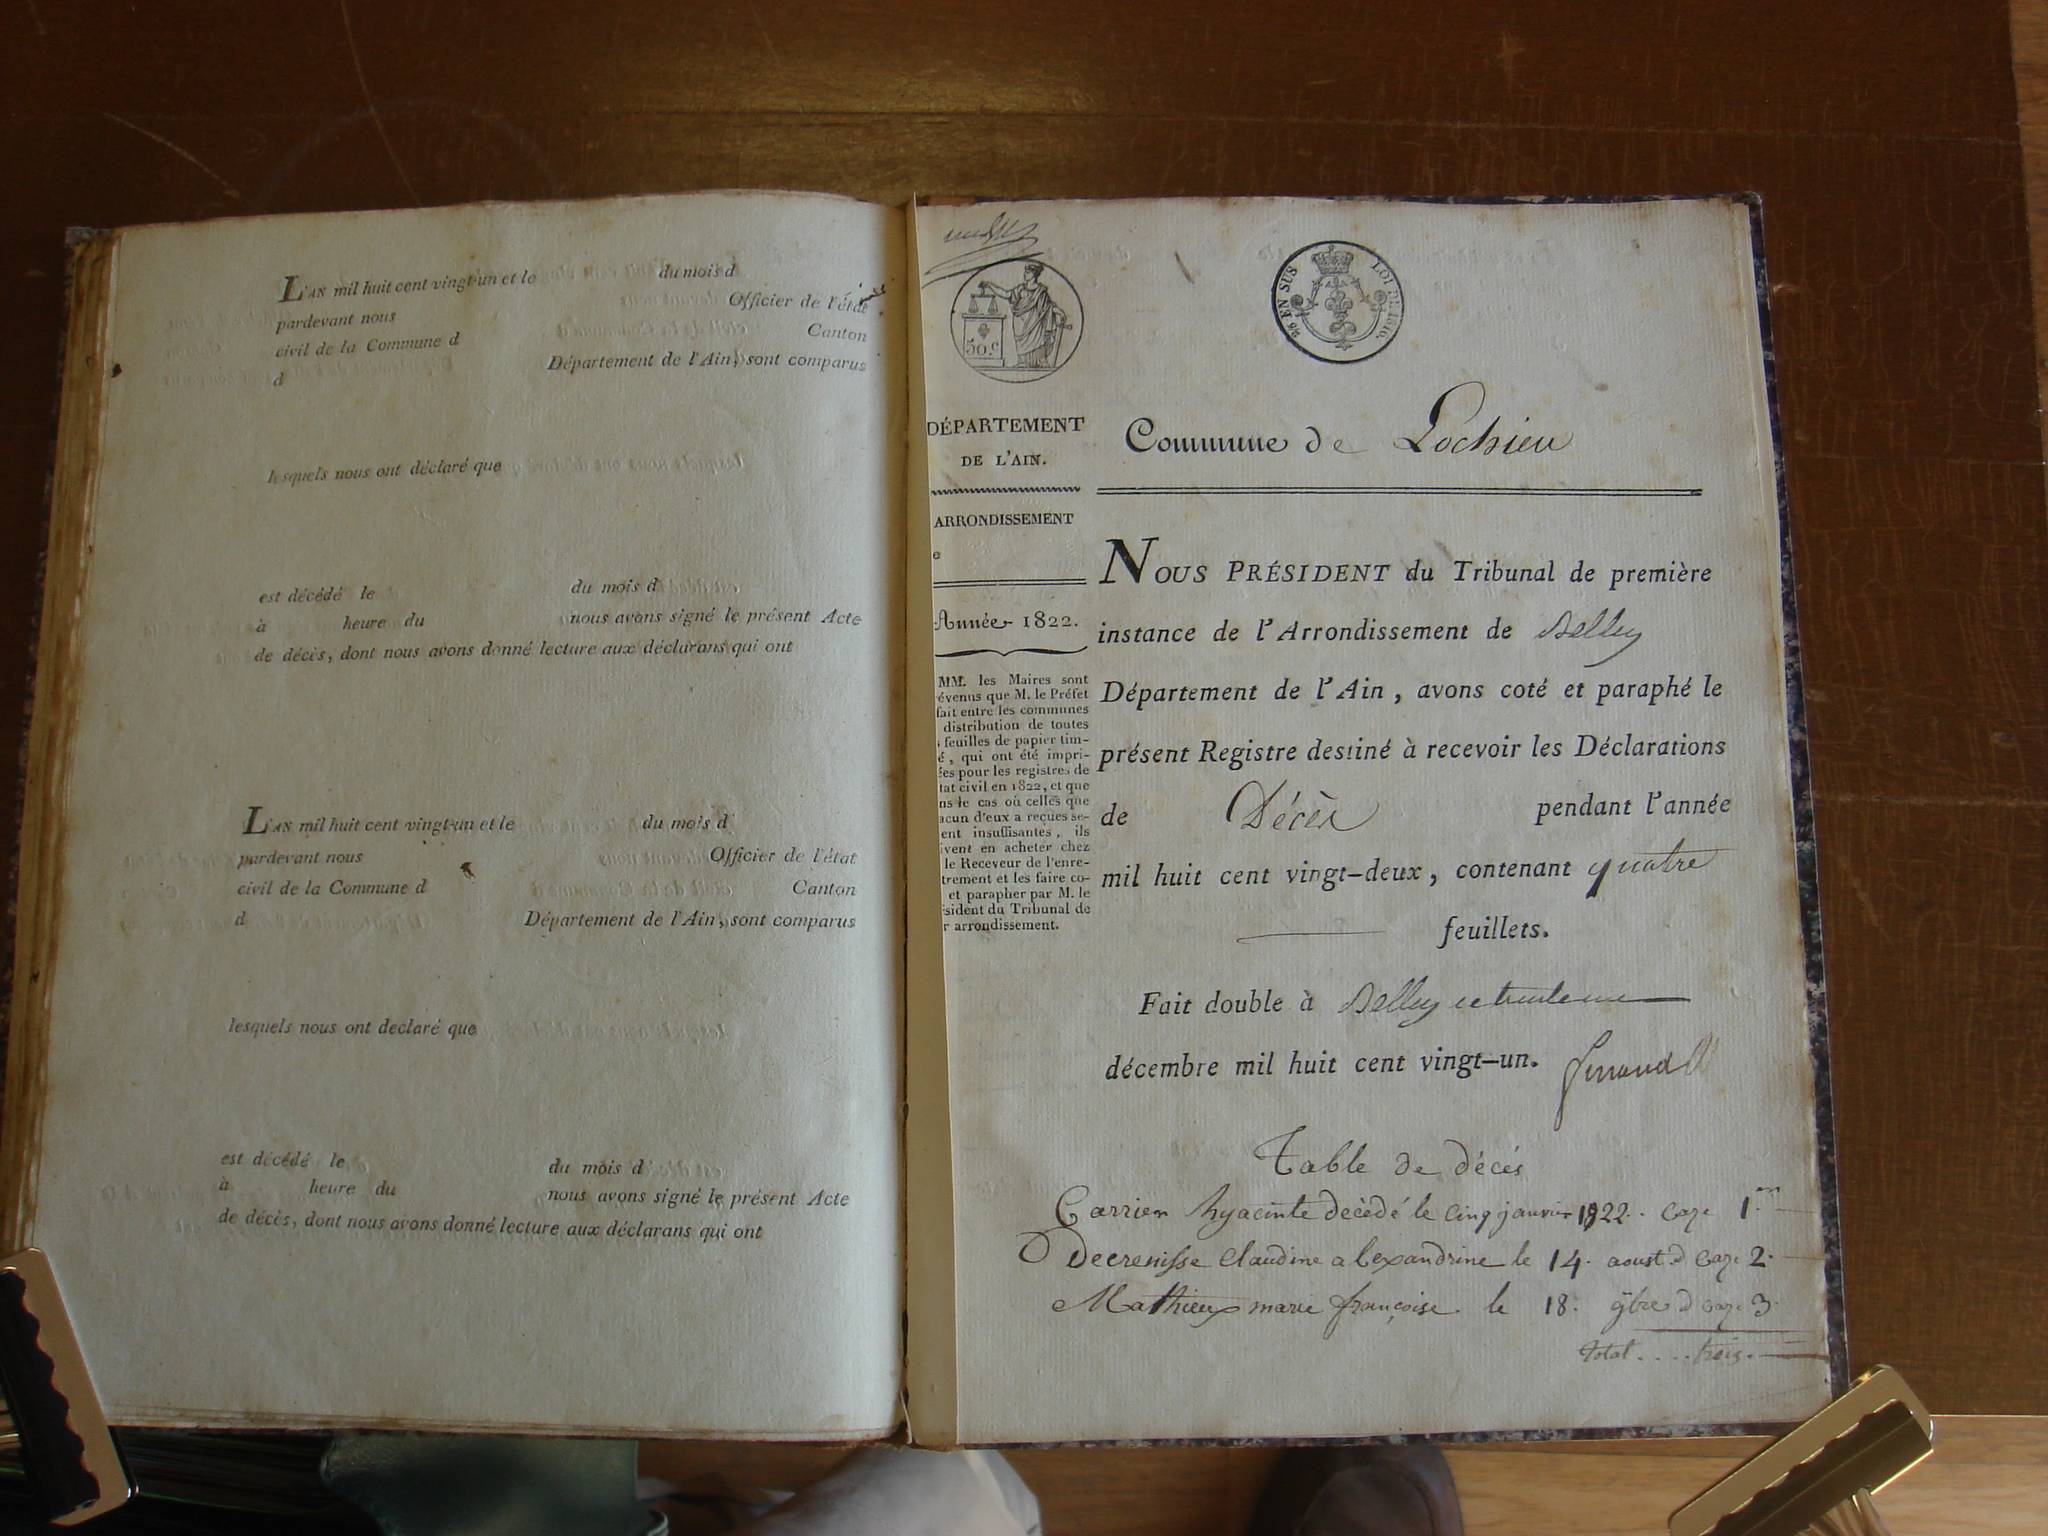 L'AN mil huit cent vingt-un et le du mois d
pardevant nous Officier de l'état
civil de la Commune d Canton
d Département de l'Ain, sont comparus
lesquels nous ont déclaré que
est décédé le du mois d
à heure du nous avons signé le présent Acte
de décès, dont nous avons donné lecture aux déclarans qui ont
L'AN mil huit cent vingt-un et le du mois d
pardevant nous Officier de l'état
civil de la Commune d Canton
d Département de l'Ain, sont comparus
lesquels nous ont declaré que
est décédé le du mois d
à heure du nous avons signé le présent Acte
de décès, dont nous avons donné lecture aux déclarans qui ont
50.c
EN SUS LOI DE 1816.
DÉPARTEMENT
DE L'AIN.
ARRONDISSEMENT
e
Année 1822.
MM. les Maires sont
évenus que M. le Préfet
fait entre les communes
distribution de toutes
s feuilles de papier tim-
é, qui ont été impri-
ées pour les registres de
tat civil en 1822, et que
ns le cas où celles que
acun d'eux a reçues se-
ent insuffisantes, ils
ivent en acheter chez
le Receveur de l'enre-
trement et les faire co-
et parapher par M. le
sident du Tribunal de
r arrondissement.
Commune de Lochieu
NOUS PRÉSIDENT du Tribunal de première
instance de l'Arrondissement de Belley
Département de l'Ain, avons coté et paraphé le
présent Registre destiné à recevoir les Déclarations
de Décès pendant l'année
mil huit cent vingt-deux, contenant quatre
feuillets.
Fait double à Belley le trente un
décembre mil huit cent vingt-un.
Table de décés
Carrier hyacinte decédé le cinq janvier 1822. caze 1.er
Decrenisse Claudine alexandrine le 14. aoust. d caze 2.
Mathieux marie françoise. le 18. 9bre d caze 3.
total .... trois.